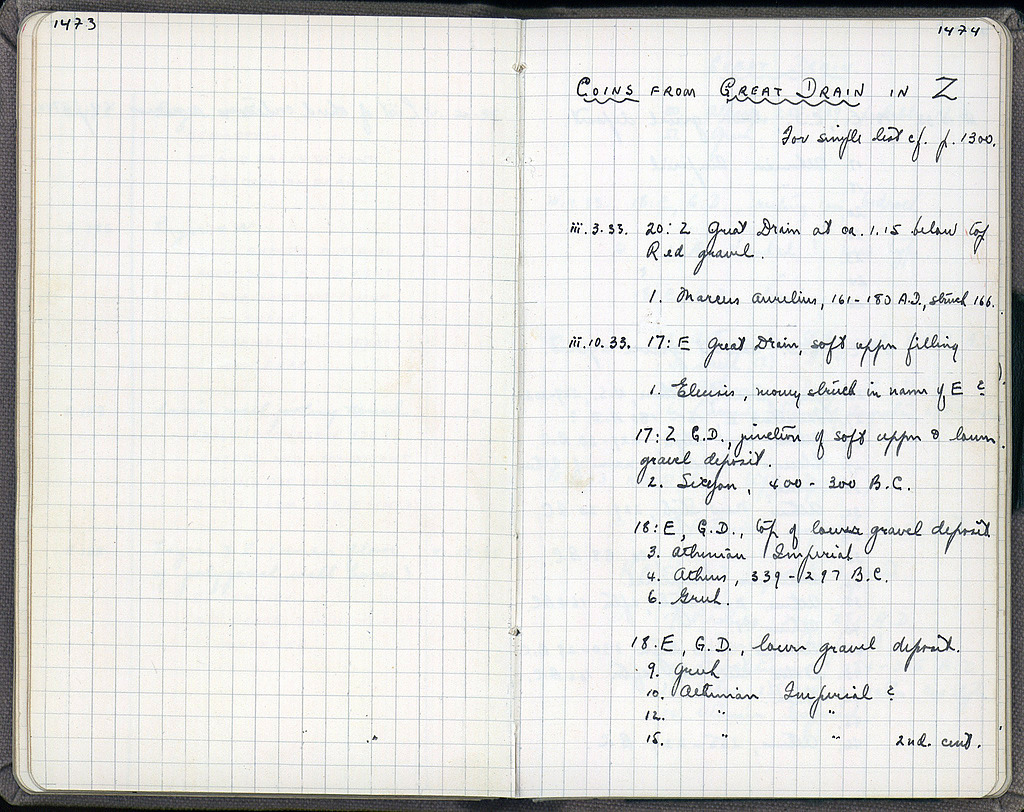 1473
1474
COINS FROM GREAT DRAIN IN Z
For simple list cf. p. 1300.
iii.3.33. 20:Z Great Drain at ca. 1.15 below top
Red gravel.
1. Marcus Aurelius, 161-180 A.D., struck 166.
iii.10.33. 17:E Great Drain, soft upper filling
1. Eleusis, money struck in name of E ?
17:Z G.D., junction of soft upper & lower
gravel deposit.
2. Sikyon, 400-300 B.C.
18:E, G.D., top of lower gravel deposit
3. Athenian Imperial
4. Athens, 339-297 B.C.
6. Greek.
18.E, G.D., lower gravel deposit.
9. Greek
10. Athenian Imperial ?
12. " "
15. " " 2nd. cent.